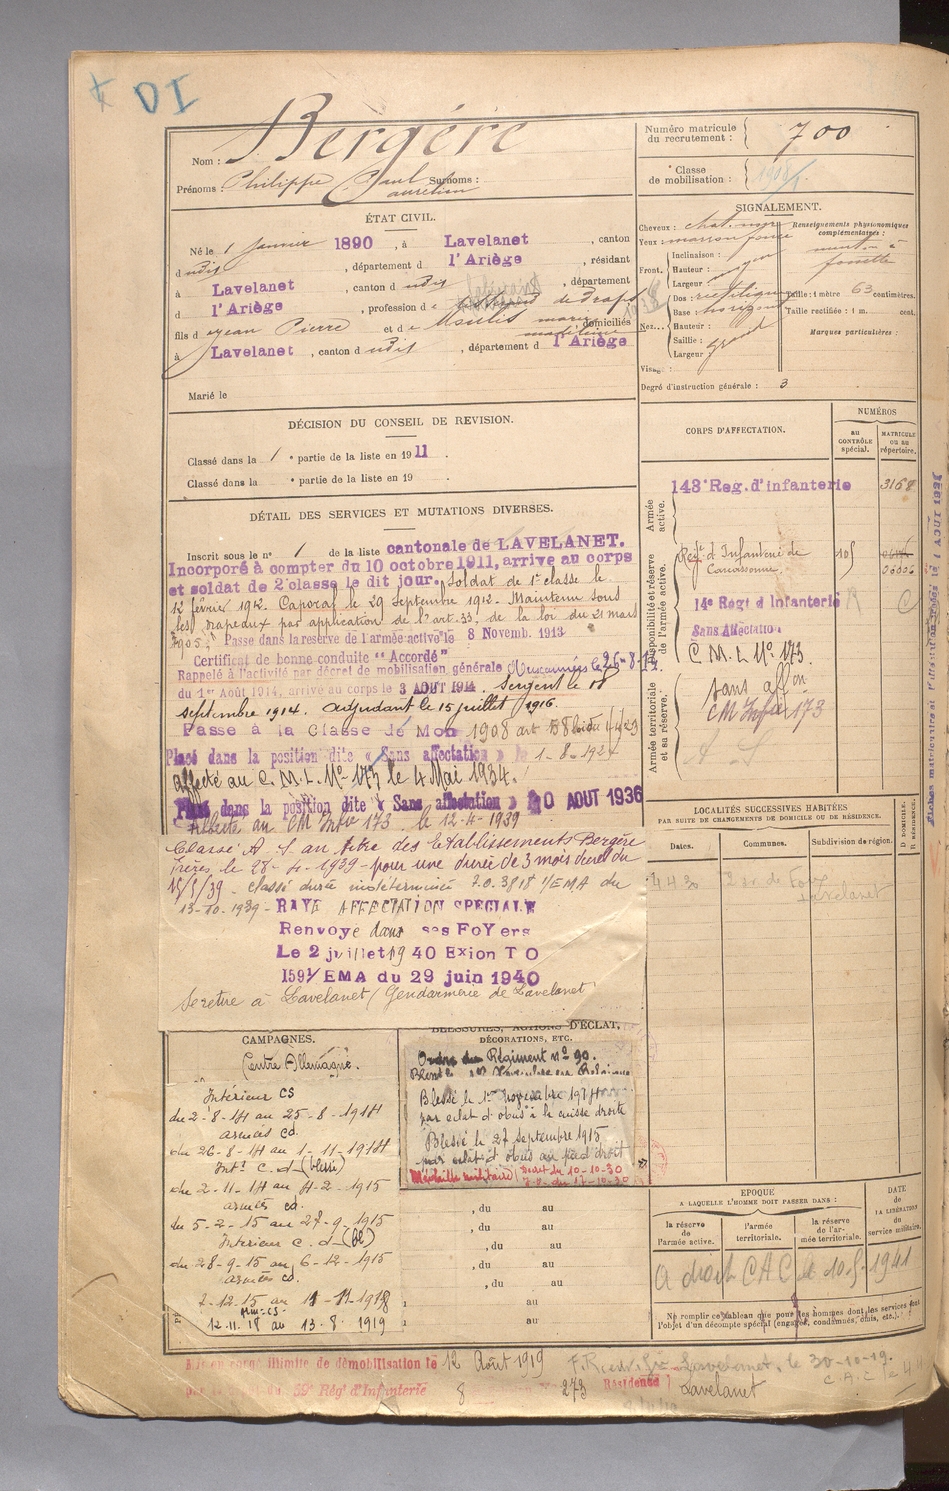 DI
Nom : Bergère
Prénoms : Philippe Paul Surnoms :
aurélien
Numéro matricule
du recrutement : 700
Classe
de mobilisation :
ÉTAT CIVIL.
Né le 1 Janvier 1890, à Lavelanet, canton
d udit, département d l'Ariège, résidant
à Lavelanet, canton d udit, département
d l'Ariège, profession de de draps
fils d e Jean Pierre et d e Moulis marie
madeleine domiciliés
à Lavelanet, canton d udit, département d l'Ariège
Marié le
SIGNALEMENT.
Cheveux : chat. noir
Yeux : marron foncé
Front. Inclinaison :
Hauteur :
Largeur : moyen
Nez. Dos : rectiligne
Base : horizon
Hauteur :
Saillie :
Largeur
Visage :
Renseignements physionomiques
complémentaires :
menton à
fossette
Taille : 1 mètre 63 centimètres.
Taille rectifiée : 1 m. cent.
Marques particulières :
Degré d'instruction générale : 3
DÉCISION DU CONSEIL DE REVISION.
Classé dans la 1e partie de la liste en 1911.
Classé dans la e partie de la liste en 19 .
DÉTAIL DES SERVICES ET MUTATIONS DIVERSES.
Inscrit sous le n° 1 de la liste cantonale de LAVELANET.
Incorporé à compter du 10 octobre 1911, arrivé au corps
et soldat de 2e classe le dit jour. Soldat de 1e classe le
12 février 1912. Caporal le 29 Septembre 1912. Maintenu sous
les drapeaux par application de l'art. 33, de la loi du 21 mars
1905. Passé dans la réserve de l'armée active le 8 Novemb. 1913
Certificat de bonne conduite "Accordé"
Rappelé à l'activité par décret de mobilisation générale
du 1er Août 1914, arrivé au corps le 3 AOUT 1914. Sergent le 18
septembre 1914. adjudant le 15 juillet 1916.
Passé à la Classe de Mob 1908 art 58
Placé dans la position dite « Sans affectation » le 1-8-1927
affecté au C.M.I. N° 173 le 4 Mai 1934.
Placé dans la position dite « Sans affectation » 10 AOUT 1936
Affecté au CM Infie 173 le 12-4-1939
Classé A S au titre des Etablissements Bergère
frères, le 28-4-1939 pour une durée de 3 mois
15/5/39. Classé durée indéterminée T.O. 3818 1/EMA du
13-10-1939 - RAYE AFFECTATION SPECIALE
Renvoyé dans ses FoYers
Le 2 juillet 19 40 Exion T O
1591/EMA du 29 juin 1940
Se retire à Lavelanet (Gendarmerie de Lavelanet)
CORPS D'AFFECTATION.
NUMÉROS
au
CONTRÔLE
spécial.
MATRICULE
ou au
répertoire.
Armée
active.
143e Reg. d'infanterie 3168
Disponibilité et réserve
de l'armée active.
Regt d'Infanterie de
Carcassonne. 105 06606
14e Régt d Infanterie
Sans Affectation
C.M.I. N° 173.
Armée territoriale
et sa réserve.
sans affon
CM Infie 173
A S
LOCALITÉS SUCCESSIVES HABITÉES
PAR SUITE DE CHANGEMENTS DE DOMICILE OU DE RÉSIDENCE.
Dates. Communes. Subdivision de région. D DOMICILE. R RÉSIDENCE.
4 4 30 Foix
Lavelanet
CAMPAGNES.
Contre Allemagne.
Intérieur CS
du 2-8-14 au 25-8-1914
armées cd.
du 26-8-14 au 1-11-1914
Intr C.d. (blessé)
du 2-11-14 au 4-2-1915
armées cd.
du 5-2-15 au 27-9-1915
Intérieur C.d. (bl)
du 28-9-15 au 6-12-1915
armées cd.
7-12-15 au 11-11-1918
12-11-18 au 13-8-1919
BLESSURES, ACTIONS D'ÉCLAT,
DÉCORATIONS, ETC.
Ordre du Régiment n° 90.
Blessé le 1er novembre 1914
par éclat d'obus à la cuisse droite
Blessé le 27 septembre 1915
par éclat d'obus au pied droit
Médaille militaire Décret du 10-10-30
J.O. du 17-10-30
, du au
, du au
, du au
, du au
, du au
au
au
EPOQUE
A LAQUELLE L'HOMME DOIT PASSER DANS :
la réserve
de
l'armée active.
l'armée
territoriale.
la réserve
de l'ar-
mée territoriale.
DATE
de
LA LIBÉRATION
du
service militaire.
A droit CAC le 10-5-1941
Ne remplir ce tableau que pour les hommes dont les services font
l'objet d'un décompte spécial (engagés, condamnés, omis, etc.).
Mis en congé illimité de démobilisation le 12 Août 1919
59e Rég' d'Infanterie 8 273 Résidence Lavelanet
Lavelanet, le 30-10-19.
C.A.C le 4